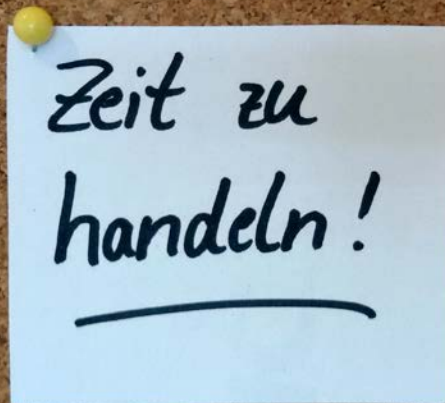 Zeit zu
handeln!